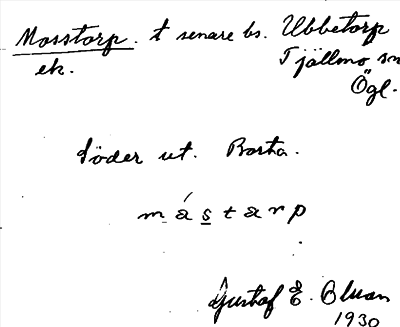 Mosstorp. t senare bs. Ubbetorp
ek. Tjällmo sn
Ögl.
Söder ut. Borta.
måstarp
Gustaf E. Bluan
1930